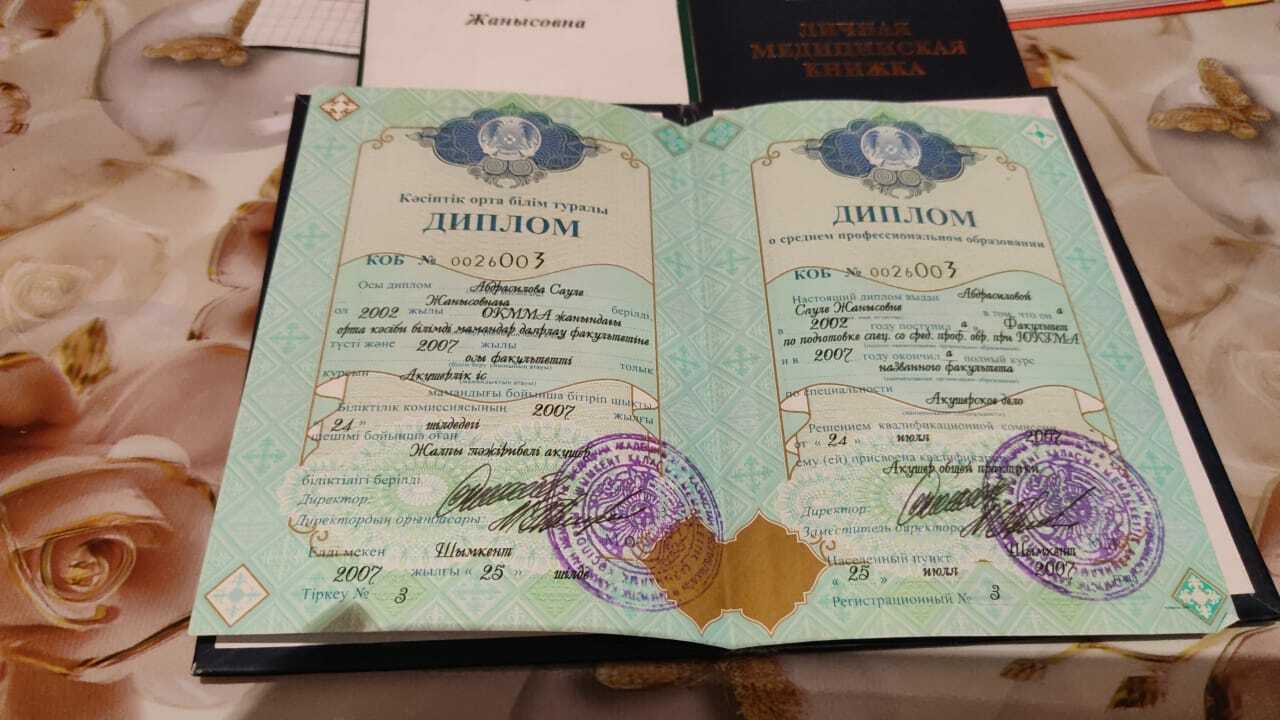 Жанысовна
ЛИЧНАЯ
МЕДИЦИНСКАЯ
КНИЖКА
Кәсіптік орта білім туралы
ДИПЛОМ
КОБ № 0026003
Осы диплом Абдрасилова Сауле
Жанысовнаға берілді,
ол 2002 жылы ОҚММА жанындағы
орта кәсіби білімді мамандар даярлау факультетіне
түсті және 2007 жылы
осы факультетті толық
курсын Акушерлік іс
мамандығы бойынша бітіріп шықты
Біліктілік комиссиясының 2007 жылғы
" 24 " шілдедегі
шешімі бойынша оған
Жалпы тәжірибелі акушер
біліктілігі берілді
Директор:
Директордың орынбасары:
Елді мекен Шымкент
2007 жылғы « 25 » шілде
Тіркеу № 3
ДИПЛОМ
о среднем профессиональном образовании
КОБ № 0026003
Настоящий диплом выдан Абдрасиловой
Сауле Жанысовне в том, что он а
в 2002 году поступил а в Факультет
по подготовке спец. со сред. проф. обр. при ЮКГМА
и в 2007 году окончил а полный курс
названного факультета
по специальности
Акушерское дело
Решением квалификационной комиссии
от « 24 » июля 2007
ему (ей) присвоена квалификация
Акушер общей практики
Директор:
Заместитель директора
Населенный пункт Шымкент
« 25 » июля 2007
Регистрационный № 3